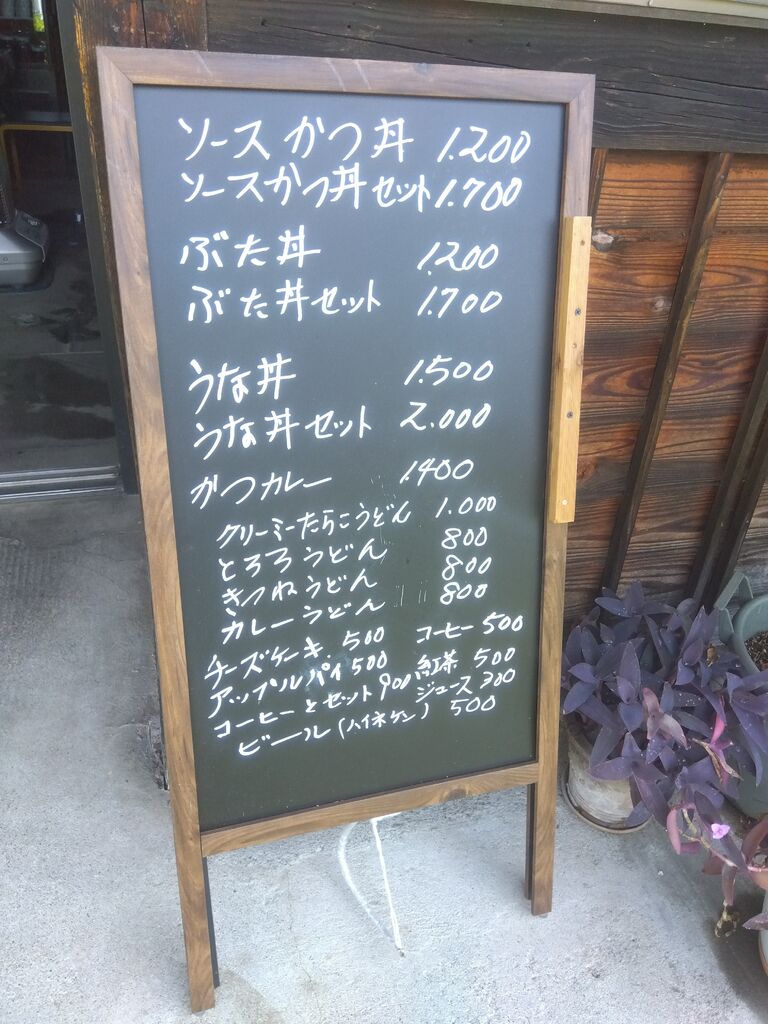 ソースかつ丼 1.200
ソースかつ丼セット 1.700
ぶた丼 1.200
ぶた丼セット 1.700
うな丼 1.500
うな丼セット 2.000
かつカレー 1.400
クリーミーたらこうどん 1.000
とろろうどん 800
きつねうどん 〃 800
カレーうどん 800
チーズケーキ. 500 コーヒー 500
アップルパイ 500 紅茶 500
コーヒーとセット 900 ジュース 300
ビール (ハイネケン) 500